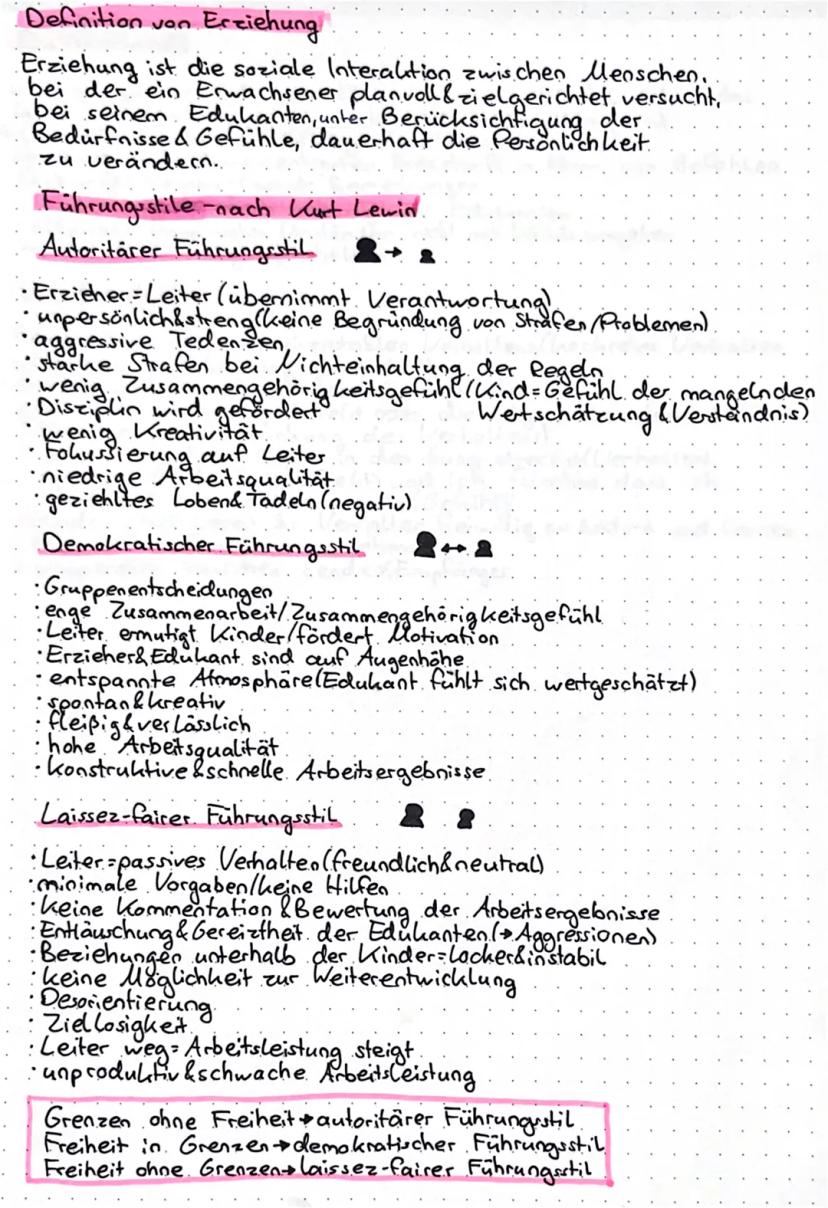 Definition von Erziehung
Erziehung ist die soziale Interaktion zwischen Menschen,
bei der ein Erwachsener planvoll & zielgerichtet versucht,
bei seinem Edukanten, unter Berücksichtigung der
Bedürfnisse & Gefühle, dauerhaft die Persönlichkeit
zu verändern.
Führungsstile - nach Kurt Lewin
Autoritärer Führungsstil →
· Erzieher = Leiter (übernimmt Verantwortung)
· unpersönlich & streng (keine Begründung von Strafen/Problemen)
· aggressive Tedenzen
· starke Strafen bei Nichteinhaltung der Regeln
· wenig Zusammengehörigkeitsgefühl (Kind = Gefühl der mangelnden
· Disziplin wird gefördert Wertschätzung & Verständnis)
· wenig Kreativität
· Fokussierung auf Leiter
· niedrige Arbeitsqualität
· geziehltes Loben & Tadeln (negativ)
Demokratischer Führungsstil ↔
· Gruppenentscheidungen
· enge Zusammenarbeit/Zusammengehörigkeitsgefühl
· Leiter ermutigt Kinder/fördert Motivation
· Erzieher & Edukant sind auf Augenhöhe
· entspannte Atmosphäre (Edukant fühlt sich wertgeschätzt)
· spontan & kreativ
· fleißig & verlässlich
· hohe Arbeitsqualität
· konstruktive & schnelle Arbeitsergebnisse
Laissez-fairer Führungsstil
· Leiter = passives Verhalten (freundlich & neutral)
· minimale Vorgaben/keine Hilfen
· keine Kommentation & Bewertung der Arbeitsergebnisse
· Enttäuschung & Gereiztheit der Edukanten (→ Aggressionen)
· Beziehungen unterhalb der Kinder = locker & instabil
· keine Möglichkeit zur Weiterentwicklung
· Desorientierung
· Ziellosigkeit
· Leiter weg = Arbeitsleistung steigt
· unproduktiv & schwache Arbeitsleistung
Grenzen ohne Freiheit → autoritärer Führungsstil
Freiheit in Grenzen → demokratischer Führungsstil
Freiheit ohne Grenzen → laissez-fairer Führungsstil